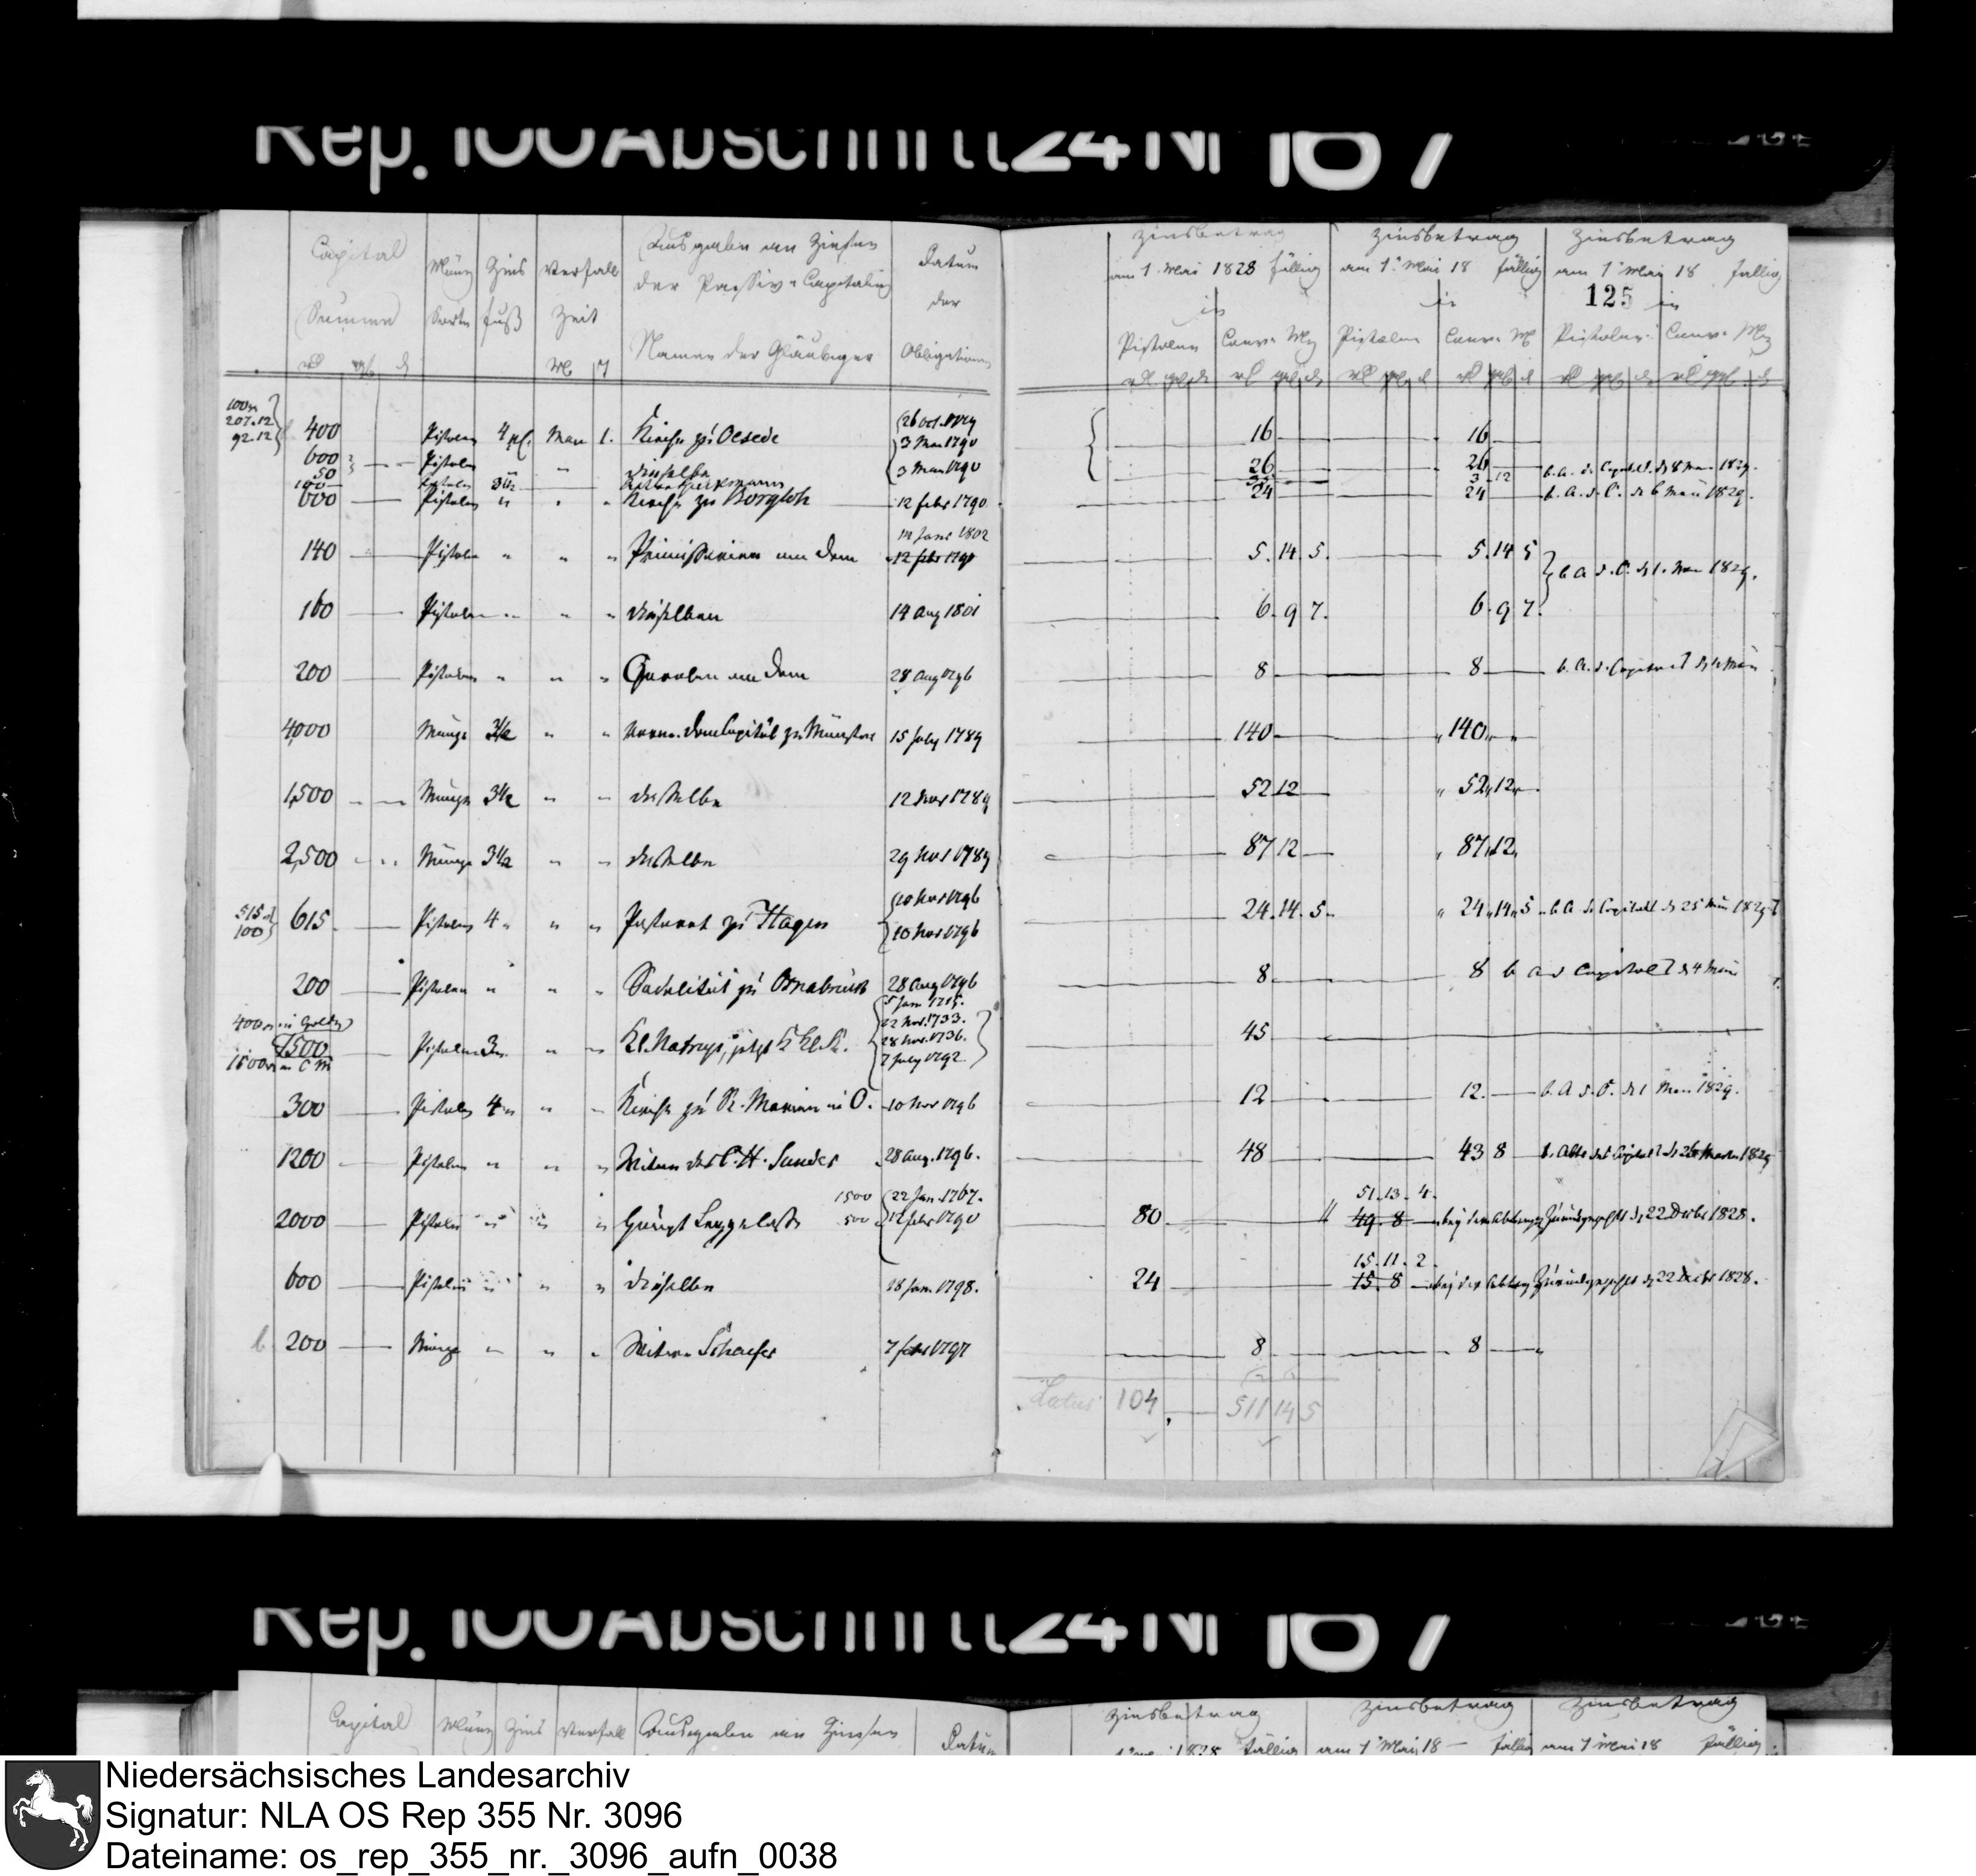 Rep. 100 Abschnitt 24 Nr 167
Capital Münz Zins Verfall Ausgaben an Zinsen Datum Zinsbetrag Zinsbetrag Zinsbetrag
Summe Sorte fuß Zeit der Passiv-Capitalien der am 1. Mai 1828 fällig am 1. Mai 18 fällig am 1. Mai 18 fällig
125
in in in
Namen der Gläubiger Obligationen Pistolen Conv. Mz Pistolen Conv. M Pistolen Conv. Mz
207.12
92.12
400 Pistolen 4 pC. Mai 1. Kirche zu Oesede 26 oct. 3 Mai 1790 16 16
600 Pistolen dieselbe 3 Mai 1790 26 26 b. A. d. Capitals d. 8 Mai 1829.
50
100 Pistolen 3 12
600 Pistolen Kirche zu Borgloh 12 febr 1790 24 24 b. A. d. C. d. 6 Mai 1829.
140 Pistolen Primissarien am Dom 12 febr 5. 14. 5. 5. 14 5
14 Janr 1802
b A d. C. d. 1. Mai 1829.
160 Pistolen " " " dieselben 14 Aug 1801 6. 9 7. 6. 9 7.
200 Pistolen " " " am Dom 28 Aug 1796 8 8 b. A. d. Capitals d. Mai
4000 Münze 3½ " " Dom Capitul zu Münster 15 July 1789 140 140
1,500 Münze 3½ " " dasselbe 12 Nov 1789 52 12 52 12
2,500 Münze 3½ " " dasselbe 29 Nov 1789 87 12 87 12
515
100
615 Pistolen 4 " " " Pastorat zu Hagen 10 Nov 1796 24. 14. 5. 24 14 5 b A d. Capitals d. 25 Mai 1829
10 Nov 1796
200 Pistolen " " " Sodalität zu Osnabrück 28 Aug 1796 8 8 b A d Capitals d 4 Mai
400 in Golde
1500
1500 in C M
Pistolen 3 " " Kl. Natrup, jetzt 45
22 Nov. 1733.
28 Nov. 1736.
7 July 1792.
300 Pistolen 4 " " " Kirche zu St. Marien in O. 10 Nov 1796 12 12. b. A d. C. d 1 Mai 1829.
1200 Pistolen " " " Witwe des C. H. Sander 28 Aug. 1796. 48 43 8 d. 26 Martz 1829
2000 Pistolen " " " Leggelasse 1500 22 Jan. 1767. 80 49. 8 bey dem Abtrag d. 22 Decbr 1828.
500 12 febr 1790 51. 13. 4.
600 Pistolen " " " dieselben 18 Jan. 1798. 24 15. 8 bey der Abtrag d. 22 Decbr 1828.
15. 11. 2.
200 Münze " " " Witwe Schaefer 7 1797 8 8
Latus 104 511 14 5
Rep. 100 Abschnitt 24 Nr 167
Capital Münz Zins Verfall Ausgaben an Zinsen Datum Zinsbetrag Zinsbetrag Zinsbetrag
1828 fällig am 1 Mai 18 fällig am 1 Mai 18 fällig
Niedersächsisches Landesarchiv
Signatur: NLA OS Rep 355 Nr. 3096
Dateiname: os_rep_355_nr._3096_aufn_0038